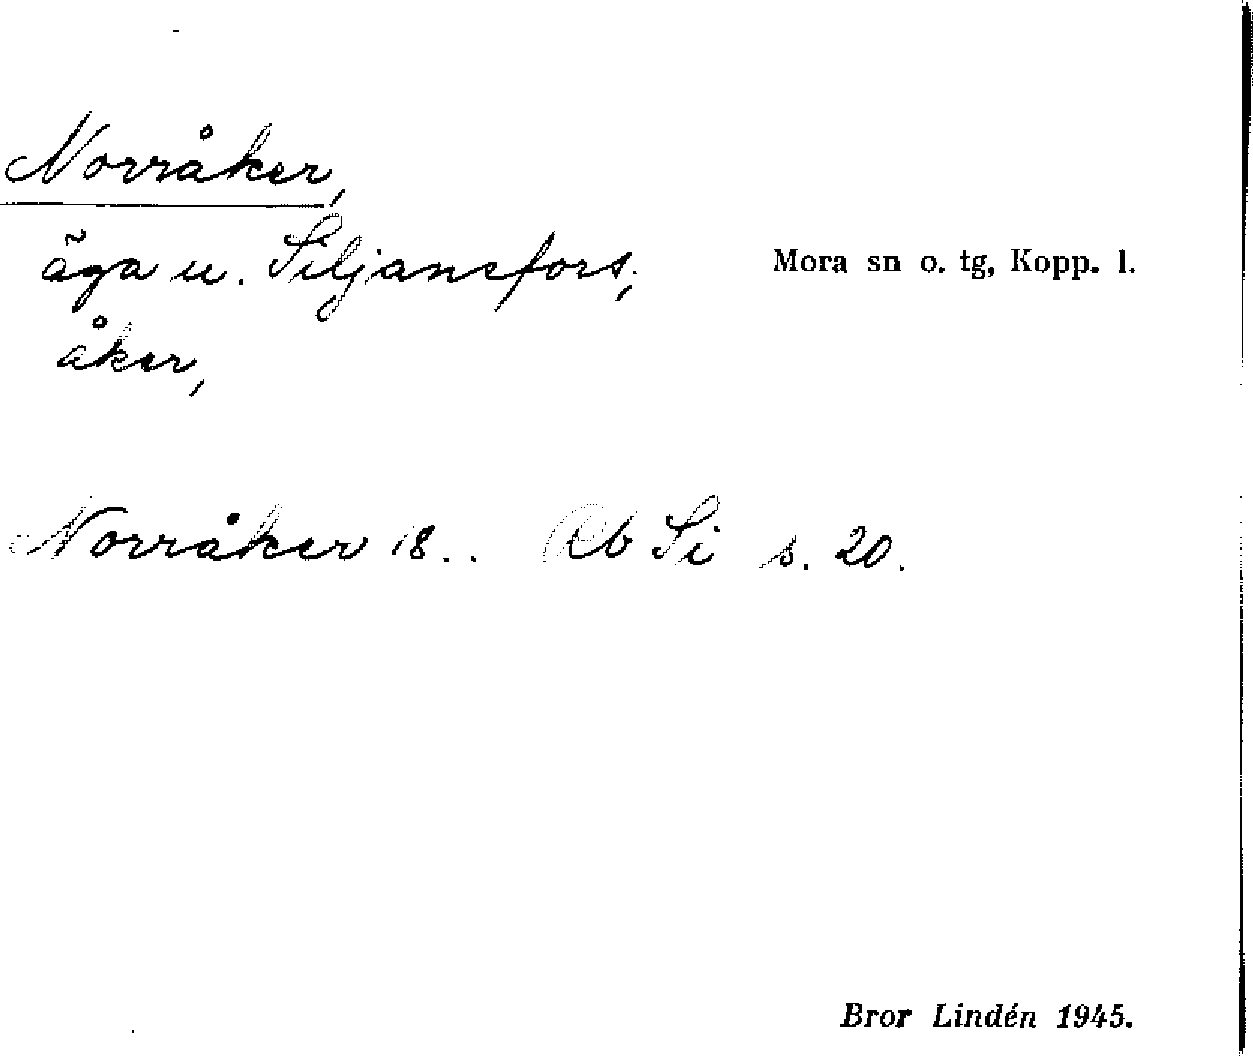 Norråker,
äga u. Siljansfors,
Mora sn o. tg, Kopp. l.
åker,
Norråker 18.. Rb Si s. 20.
Bror Lindén 1945.